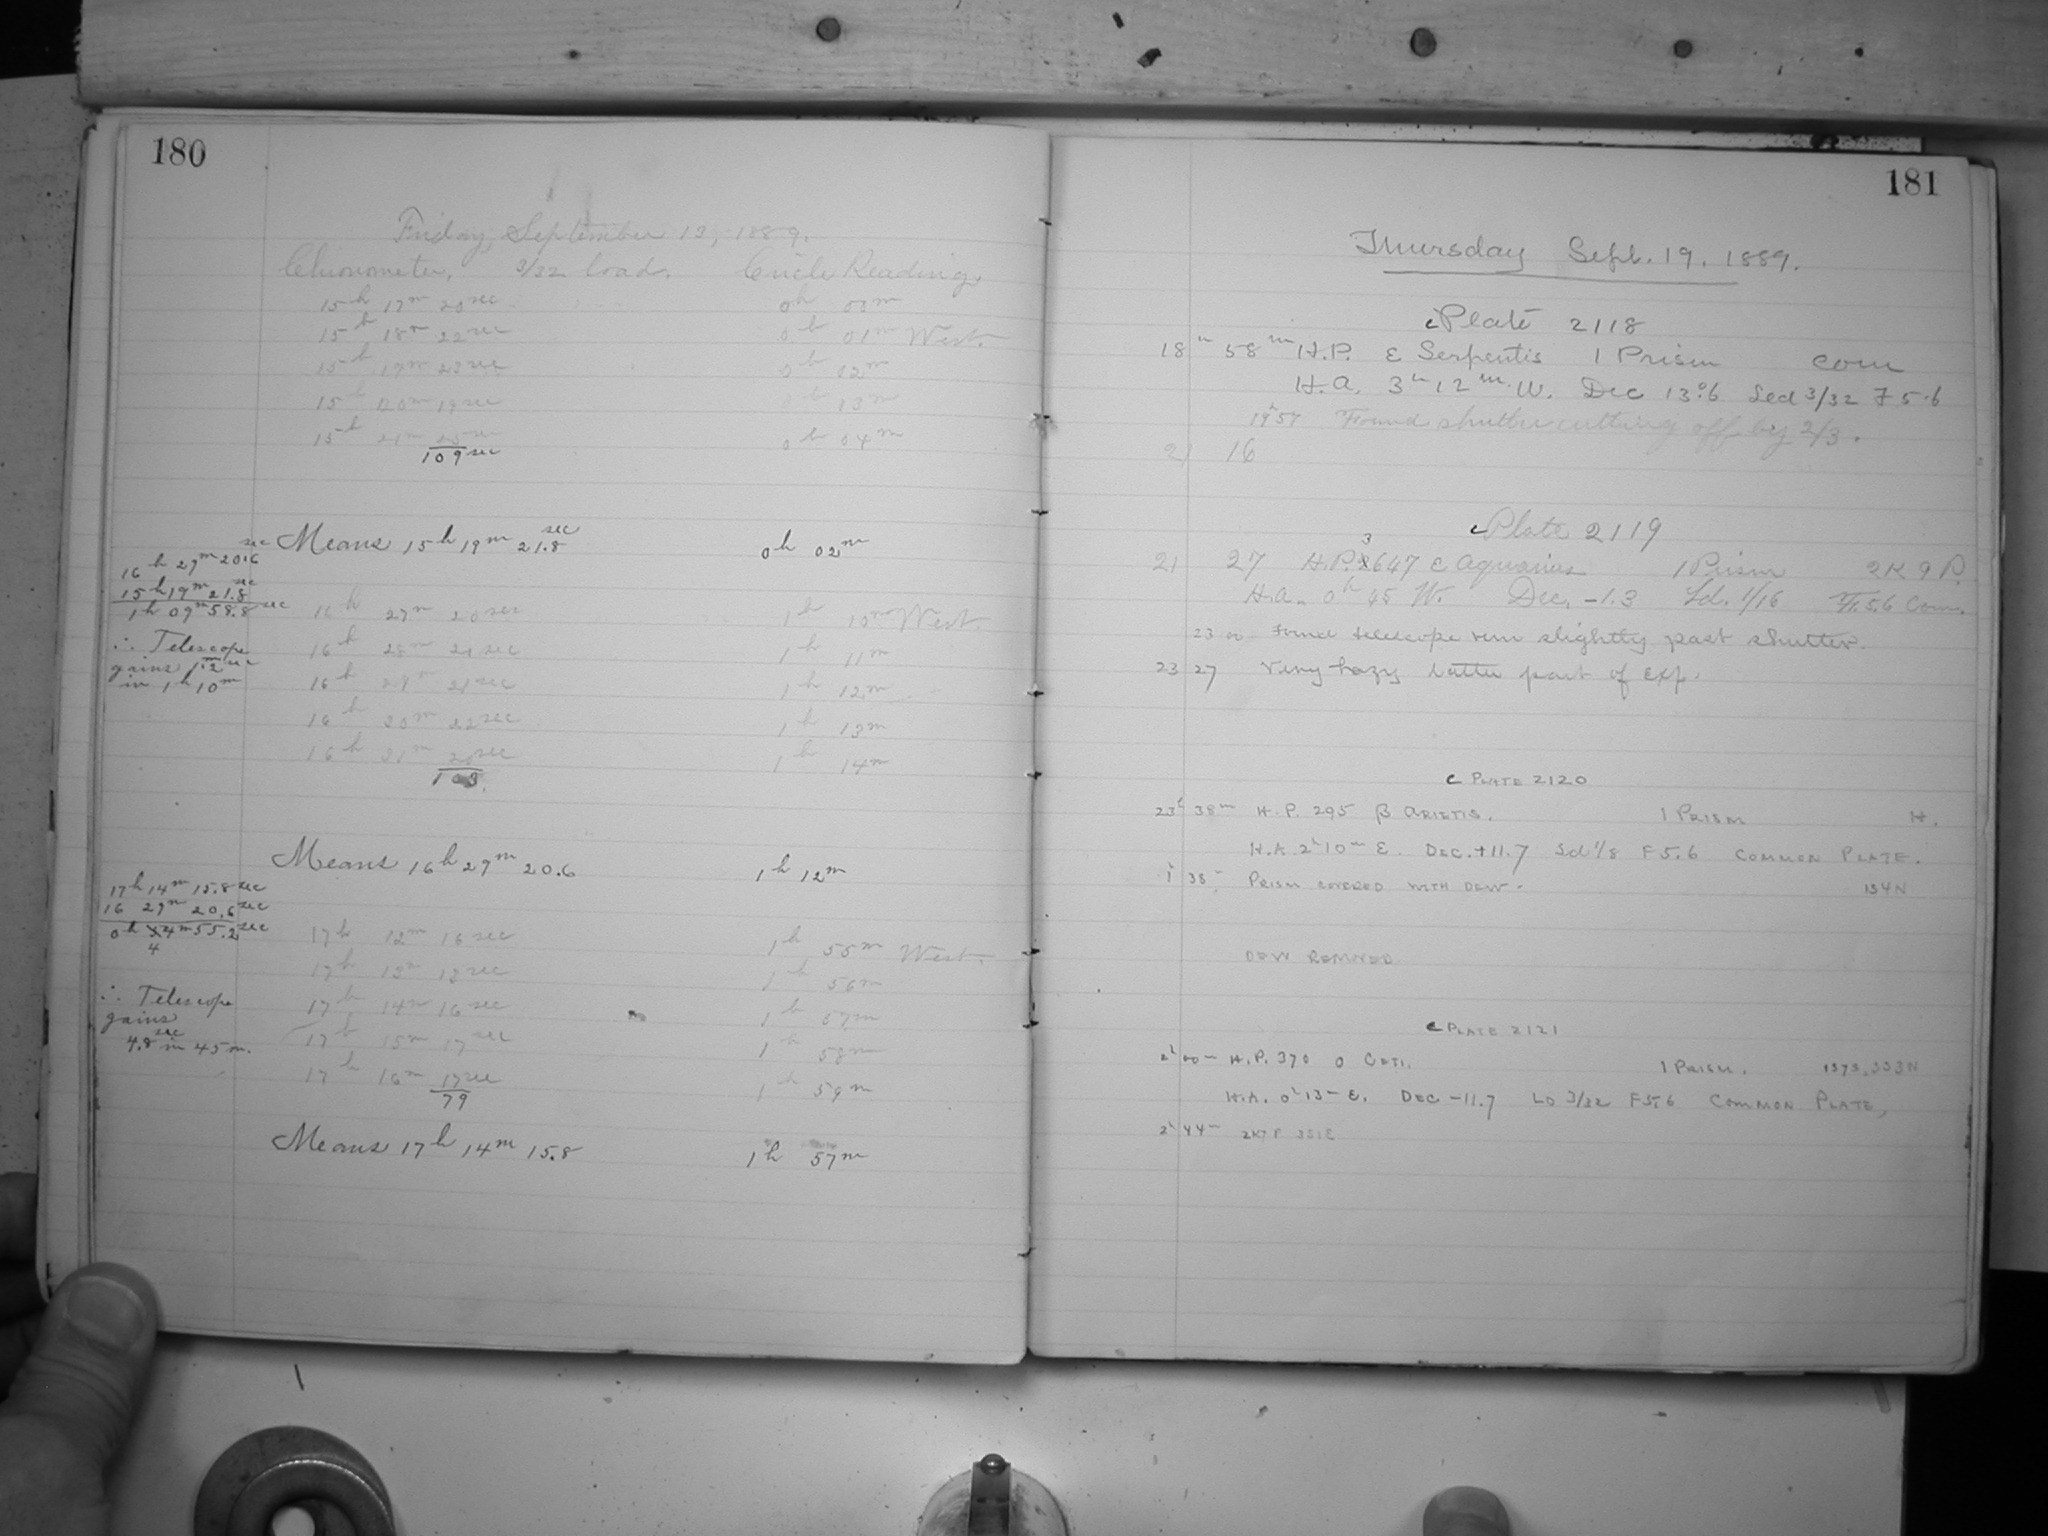 180
Friday, September 13, 1889.
Chronometer, 3/32 load, Circle Reading
15h 17m 20sec 0h 00m
15h 18m 22sec 0h 01m West.
15h 19m 23sec 0h 02m
15h 20m 19sec 0h 03m
15h 21m 25sec 0h 04m
109sec
Means 15h 19m 21.8sec 0h 02m
16h 29m 20.6sec
15h 19m 21.8sec
1h 09m 58.8sec
∴ Telescope
gains 1.2sec
in 1h 10m
16h 27m 20sec 1h 10m West.
16h 28m 20sec 1h 11m
16h 29m 21sec 1h 12m
16h 30m 22sec 1h 13m
16h 31m 20sec 1h 14m
103
Means 16h 29m 20.6 1h 12m
17h 14m 15.8sec
16 29m 20.6sec
0h 44m 55.2sec
4
∴ Telescope
gains
4.8sec in 45m.
17h 12m 16sec 1h 55m West.
17h 13m 13sec 1h 56m
17h 14m 16sec 1h 57m
17h 15m 17sec 1h 58m
17h 16m 17sec 1h 59m
79
Means 17h 14m 15.8 1h 57m
181
Thursday Sept. 19. 1889.
c Plate 2118
18h 58m H.P. ε Serpentis 1 Prism Com
H.A. 3h 12m W. Dec 13°.6 Led 3/32 F 5.6
19h 57 Found shutter cutting off by 2/3.
21 16
c Plate 2119
3
21 27 H.P. 2647 ε Aquarius 1 Prism 2K 9 P.
H.A. 0h 45 W. Dec. -1.3 Ld. 1/16 F. 5.6 Com.
23 00 Found telescope run slightly past shutter.
23 27 Very hazy latter part of exp.
c PLATE 2120
23h 38m H.P. 295 β ARIETIS. 1 PRISM H.
H.A. 2h 10m E. DEC. +11.7 Ld 1/8 F 5.6 COMMON PLATE.
1h 38m PRISM COVERED WITH DEW. 134N
DEW REMOVED
c PLATE 2121
2h 00m H.P. 370 o CETI. 1 PRISM. 137S, 333N
H.A. 0h 13m E. DEC -11.7 LD 3/32 F 5.6 COMMON PLATE,
2h 44m 2K7P 251E